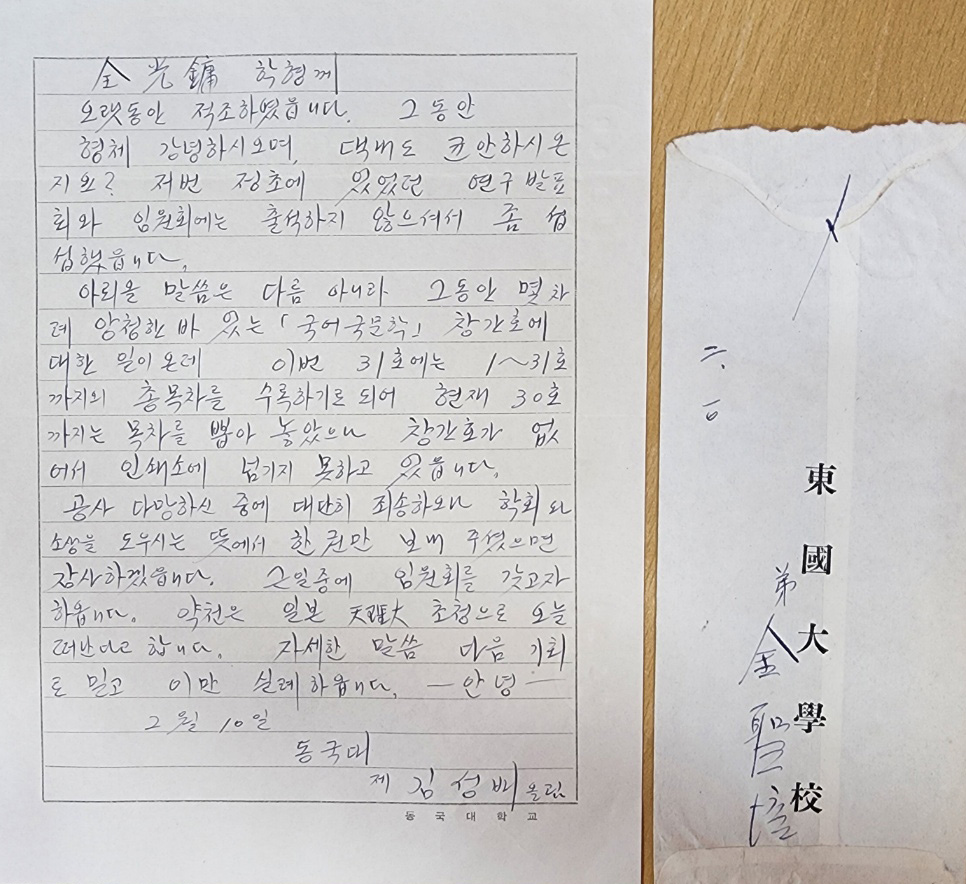 金光鏞 학형께
오랫동안 적조하였읍니다. 그동안
형체 강녕하시오며, 댁내도 균안하시온
지요? 저번 정초에 있었던 연구발표
회와 임원회에는 출석하지 않으셔서 좀 섭
섭했읍니다.
아뢰올 말씀은 다름 아니라 그동안 몇차
례 앙청한 바 있는 「국어국문학」 창간호에
대한 일이온데 이번 31호에는 1~31호
까지의 총목차를 수록하기로 되어 현재 30호
까지는 목차를 뽑아 놓았으나 창간호가 없
어서 인쇄소에 넘기지 못하고 있읍니다.
공사 다망하신 중에 대단히 죄송하오나 학회와
소생을 도우시는 뜻에서 한권만 보내 주셨으면
감사하겠읍니다. 근일중에 임원회를 갖고자
하옵니다. 약천은 일본 天理大 초청으로 오늘
떠난다고 합니다. 자세한 말씀 다음 기회
로 밀고 이만 실례하옵니다. —안녕—
2월 10일
동국대
제 김성배 올림
동국대학교
二.
東國大學校
弟 金聖培